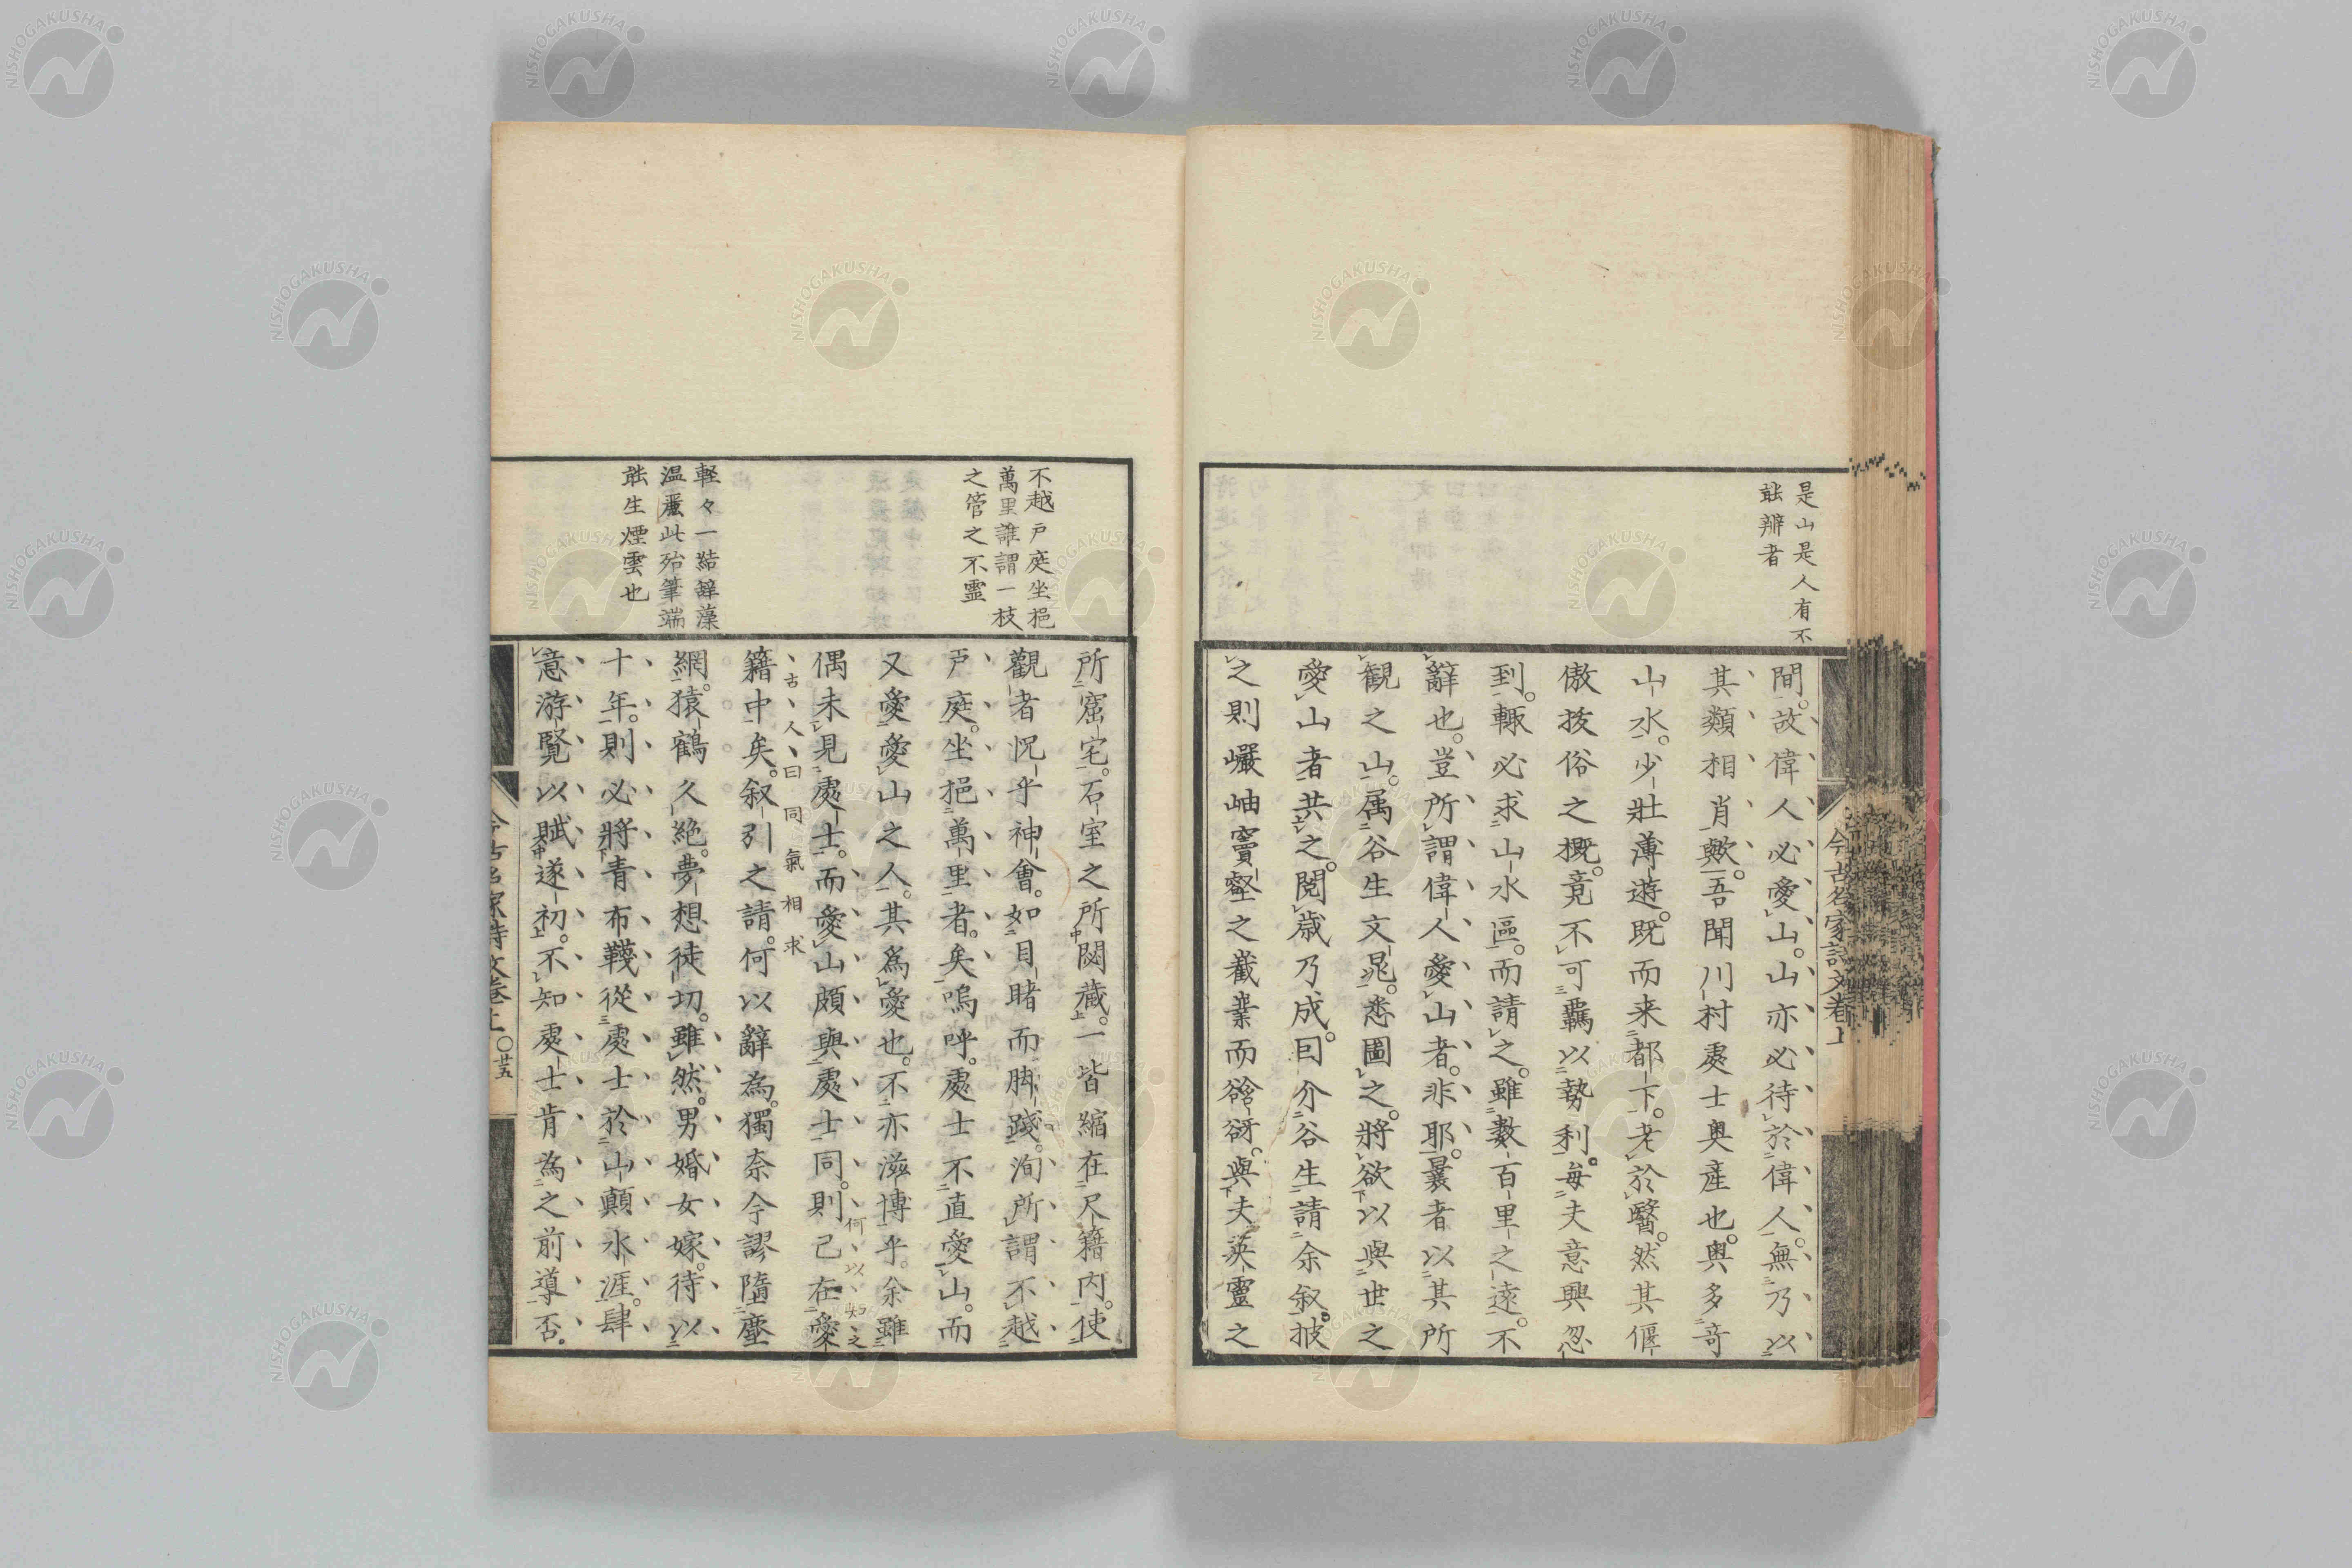 是山是人有不
能辨者
間。故偉人必愛山。山亦必待於偉人。無乃以
其類相肖歟。吾聞川村處士奧産也。奧多竒
山水。少壯薄遊。既而来都下。老於醫。然其偃
傲抜俗之概。竟不可羈以勢利。每夫意興忽
到。輙必求山水區。而請之。雖數百里之遠。不
辭也。豈所謂偉人愛山者。非耶。曩者以其所
観之山。属谷生文晁。悉圖之。將欲以與世之
愛山者共之。閲歳乃成。曰介谷生請余叙。披
之則巖岫竇壑之巀業而谽谺。與夫英靈之
今古名家詩文卷上
不越戸庭坐挹
萬里誰謂一枝
之管之不靈
輕々一結辭藻
温藉此殆筆端
能生煙雲也
所窟宅。石室之所閟藏。一皆縮在尺籍内。使
觀者怳乎神會。如目睹而脚踐。洵所謂不越
戸庭。坐挹萬里者。矣嗚呼。處士不直愛山。而
又愛愛山之人。其爲愛也。不亦滋博乎。余雖
偶未見處士。而愛山頗與處士同。則已在愛
何以失之
古人曰同氣相求
籍中矣。叙引之請。何以辭為。獨奈今謬墮塵
網。猿鶴久絶。夢想徒切。雖然。男婚女嫁。待以
十年。則必將青布韈從處士於山顛水涯。肆
意游覧以賦遂初。不知處士肯為之前導否。
今古名家詩文卷上〇廿五